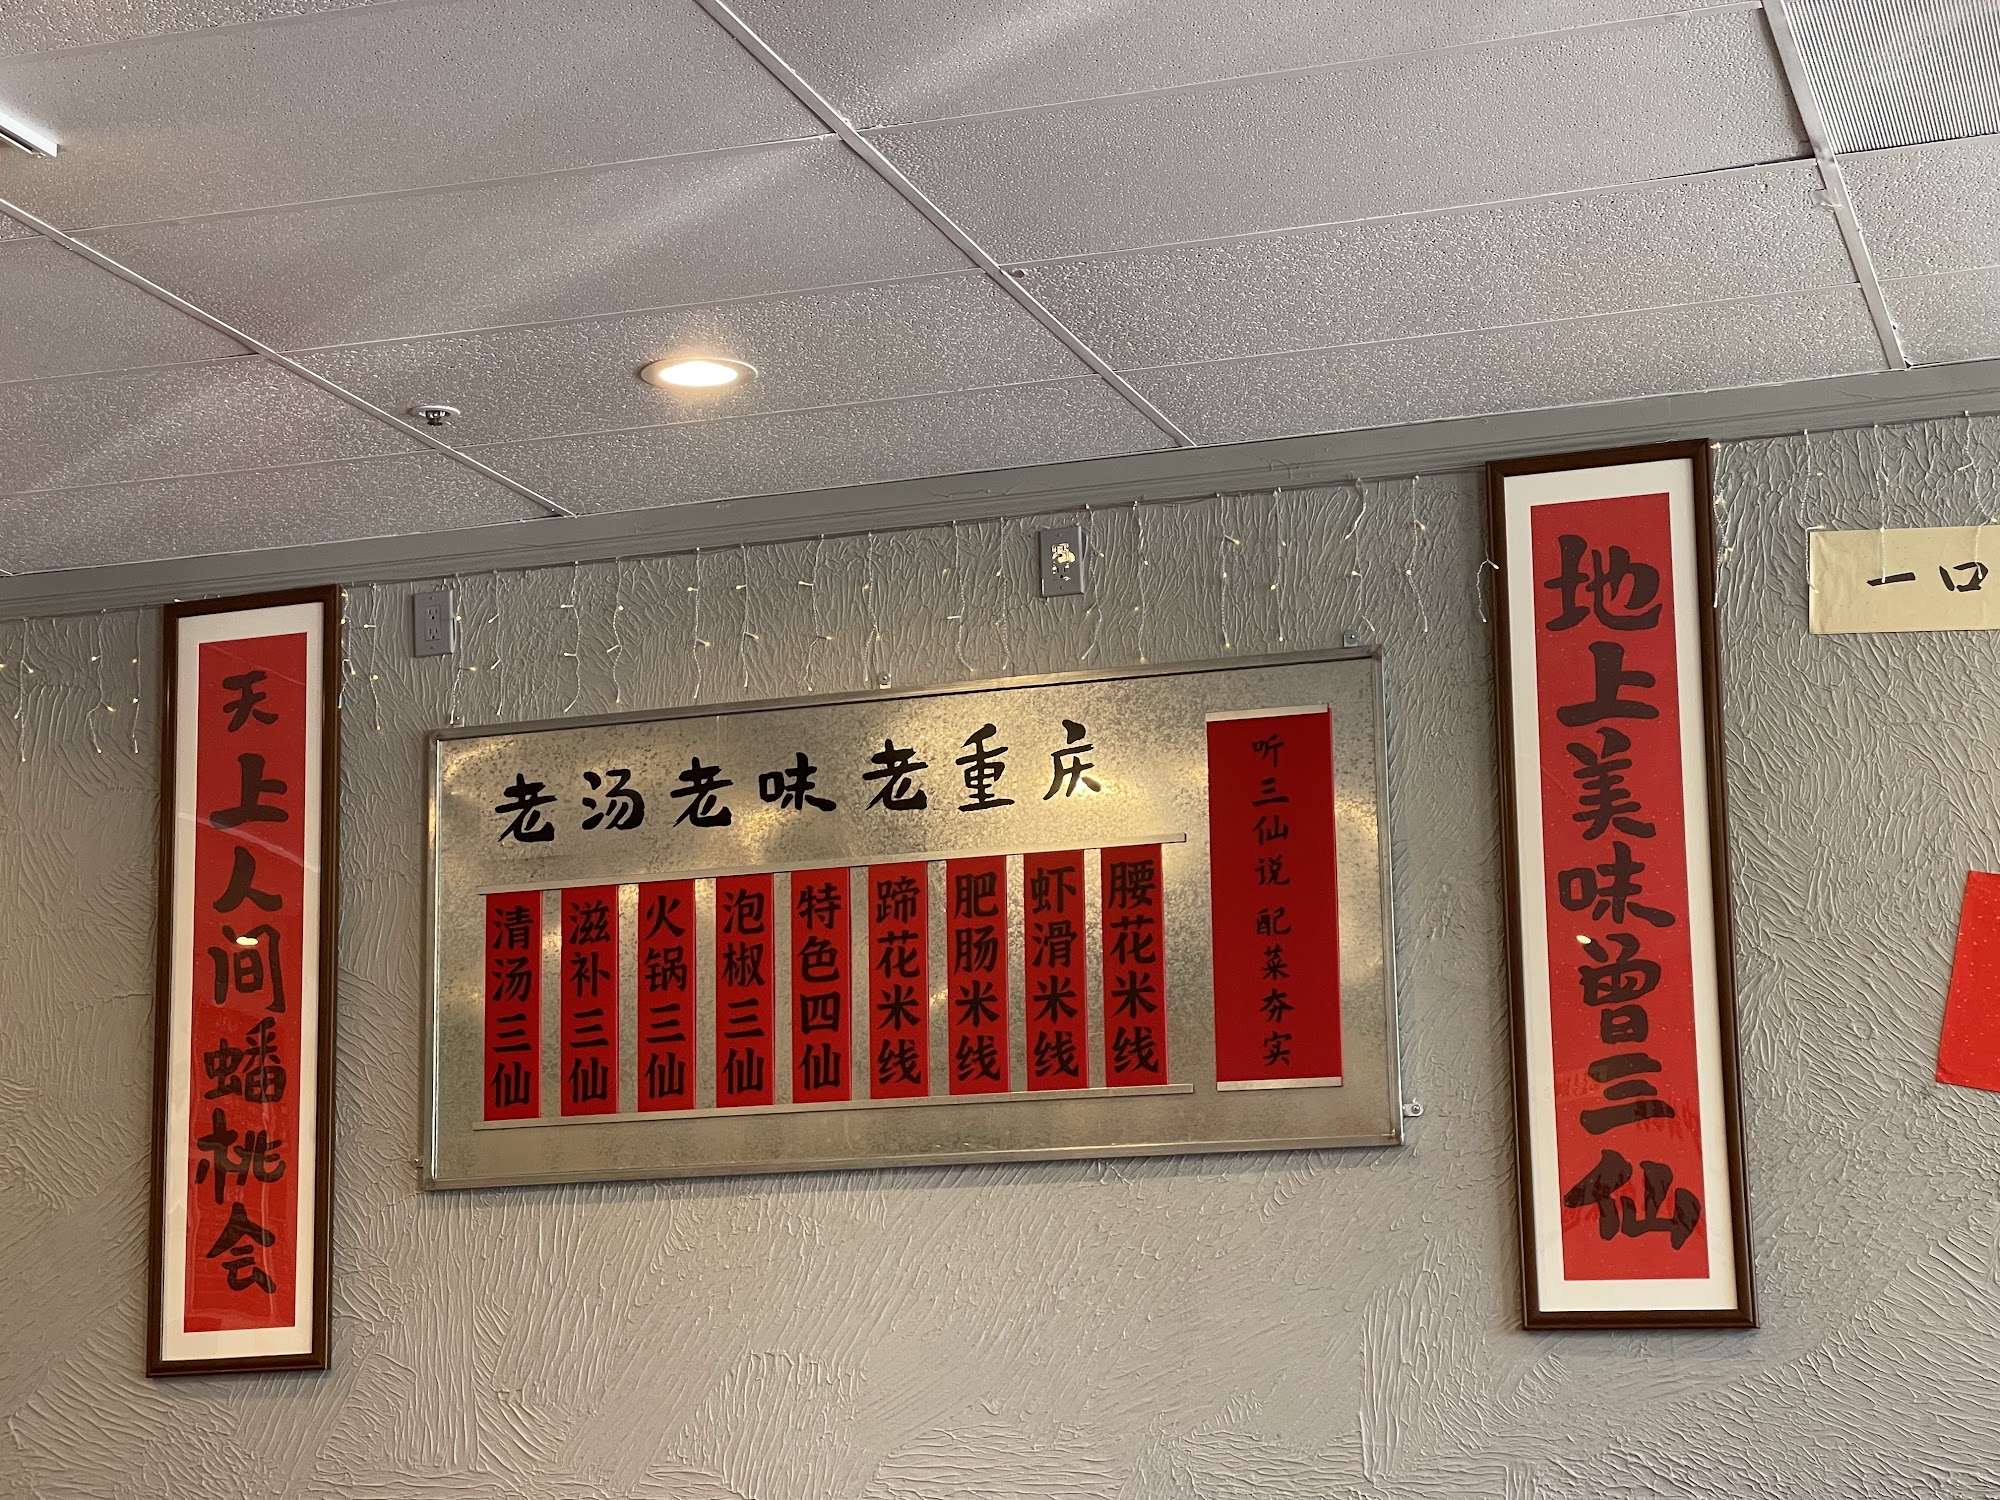 天上人间蟠桃会
老汤老味老重庆
清汤三仙
滋补三仙
火锅三仙
泡椒三仙
特色四仙
蹄花米线
肥肠米线
虾滑米线
腰花米线
听三仙说 配菜夯实
地上美味曾三仙
一口